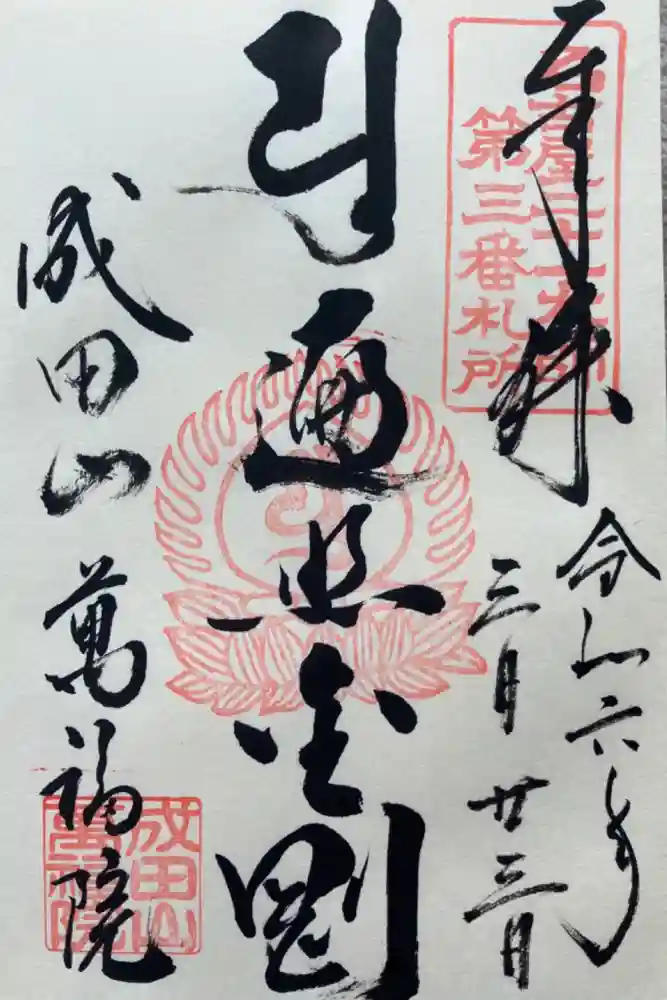 奉拝
名古屋二十一大師
第三番札所
令和六年
三月廿三日
遍照金剛
成田山
萬福院
成田山
萬福院